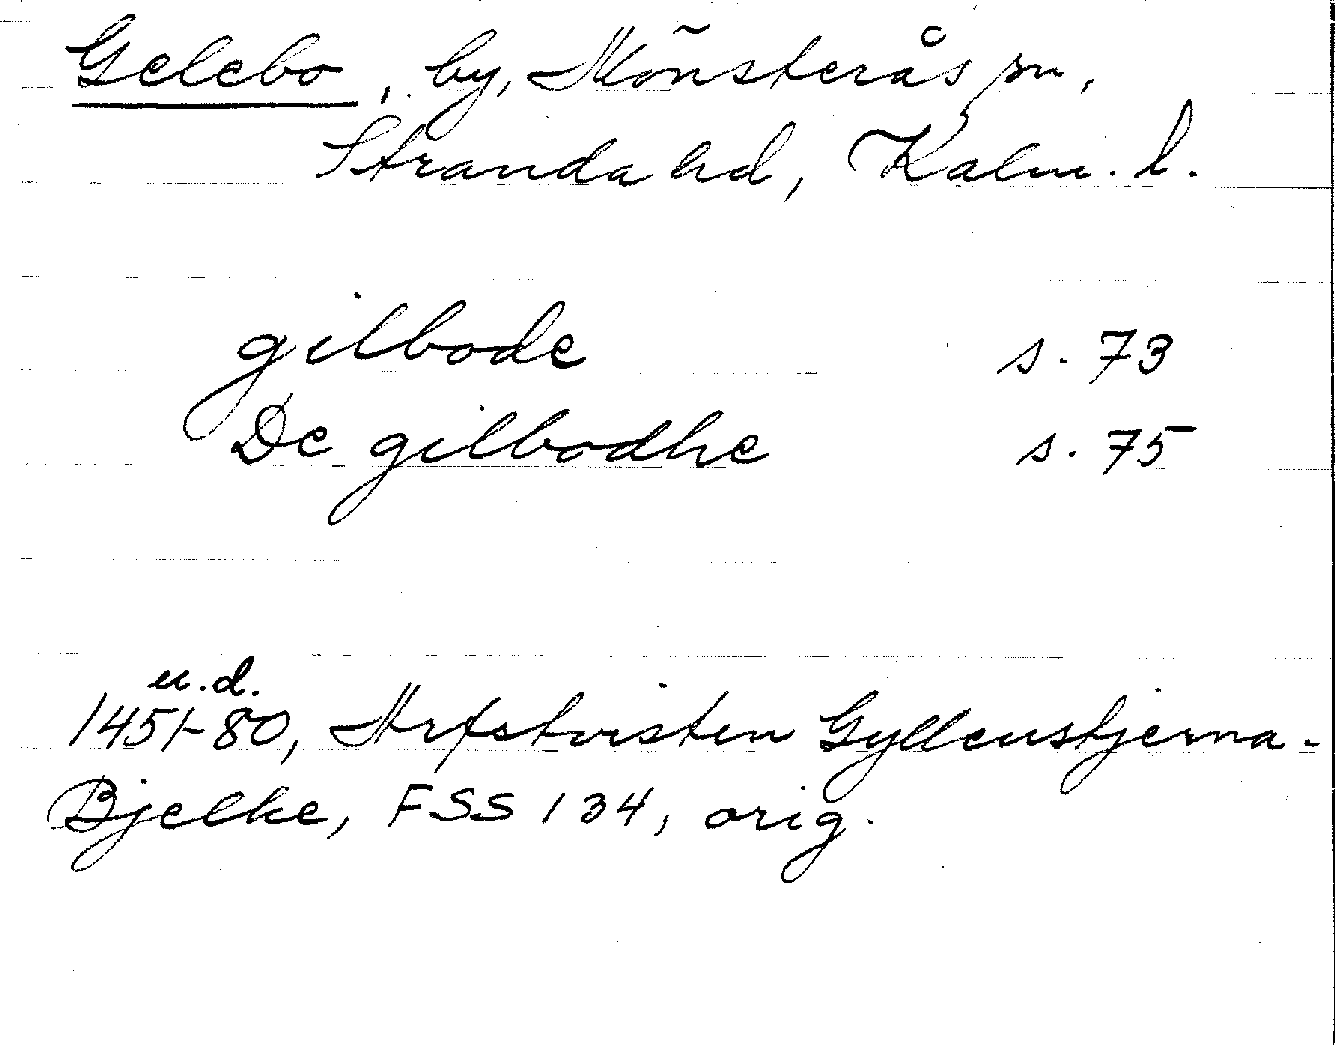 Gelebo, by, Mönsterås sn,
Stranda hd, Kalm. l.
gilbode s. 73
De gilbodhe s. 75
u.d.
1451-80, Arfstvisten Gyllenstjerna-
Bjelke, FSS 134, orig.